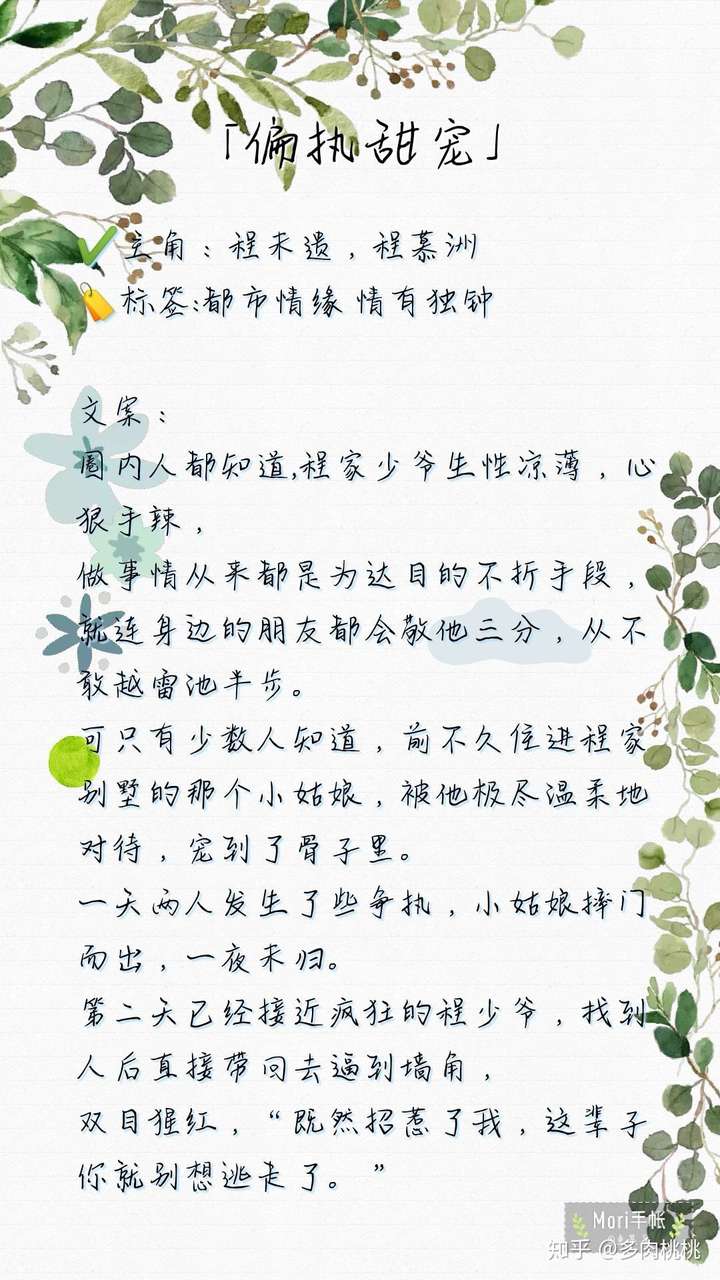 「偏执甜宠」
主角：程未遗，程慕洲
标签:都市情缘 情有独钟
文案：
圈内人都知道,程家少爷生性凉薄，心
狠手辣，
做事情从来都是为达目的不折手段，
就连身边的朋友都会敬他三分，从不
敢越雷池半步。
可只有少数人知道，前不久住进程家
别墅的那个小姑娘，被他极尽温柔地
对待，宠到了骨子里。
一天两人发生了些争执，小姑娘摔门
而出，一夜未归。
第二天已经接近疯狂的程少爷，找到
人后直接带回去逼到墙角，
双目猩红，“既然招惹了我，这辈子
你就别想逃走了。”
Mori手帐
知乎 @多肉桃桃